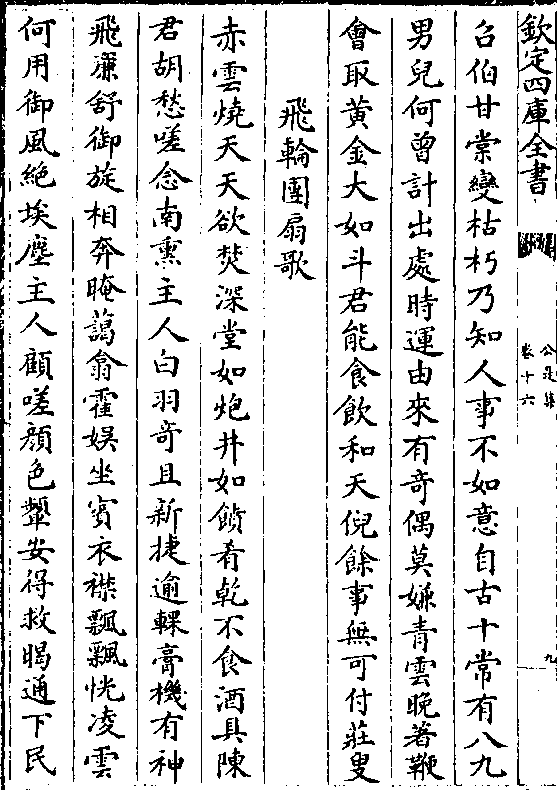 欽定四庫全書
公是集
卷十六
九
召伯甘棠變枯朽乃知人事不如意自古十常有八九
男兒何曾計出處時運由來有奇偶莫嫌青雲晚著鞭
會取黃金大如斗君能食飲和天倪餘事無可付莊叟
飛輪團扇歌
赤雲燒天天欲焚深堂如炮井如饙肴乾不食酒具陳
君胡愁嗟念南熏主人白羽奇且新捷逾輠膏機有神
飛亷舒御旋相奔晻藹翕霍娱坐賓衣襟飄飄恍凌雲
何用御風絶埃塵主人顧嗟顔色顰安得救暍通下民